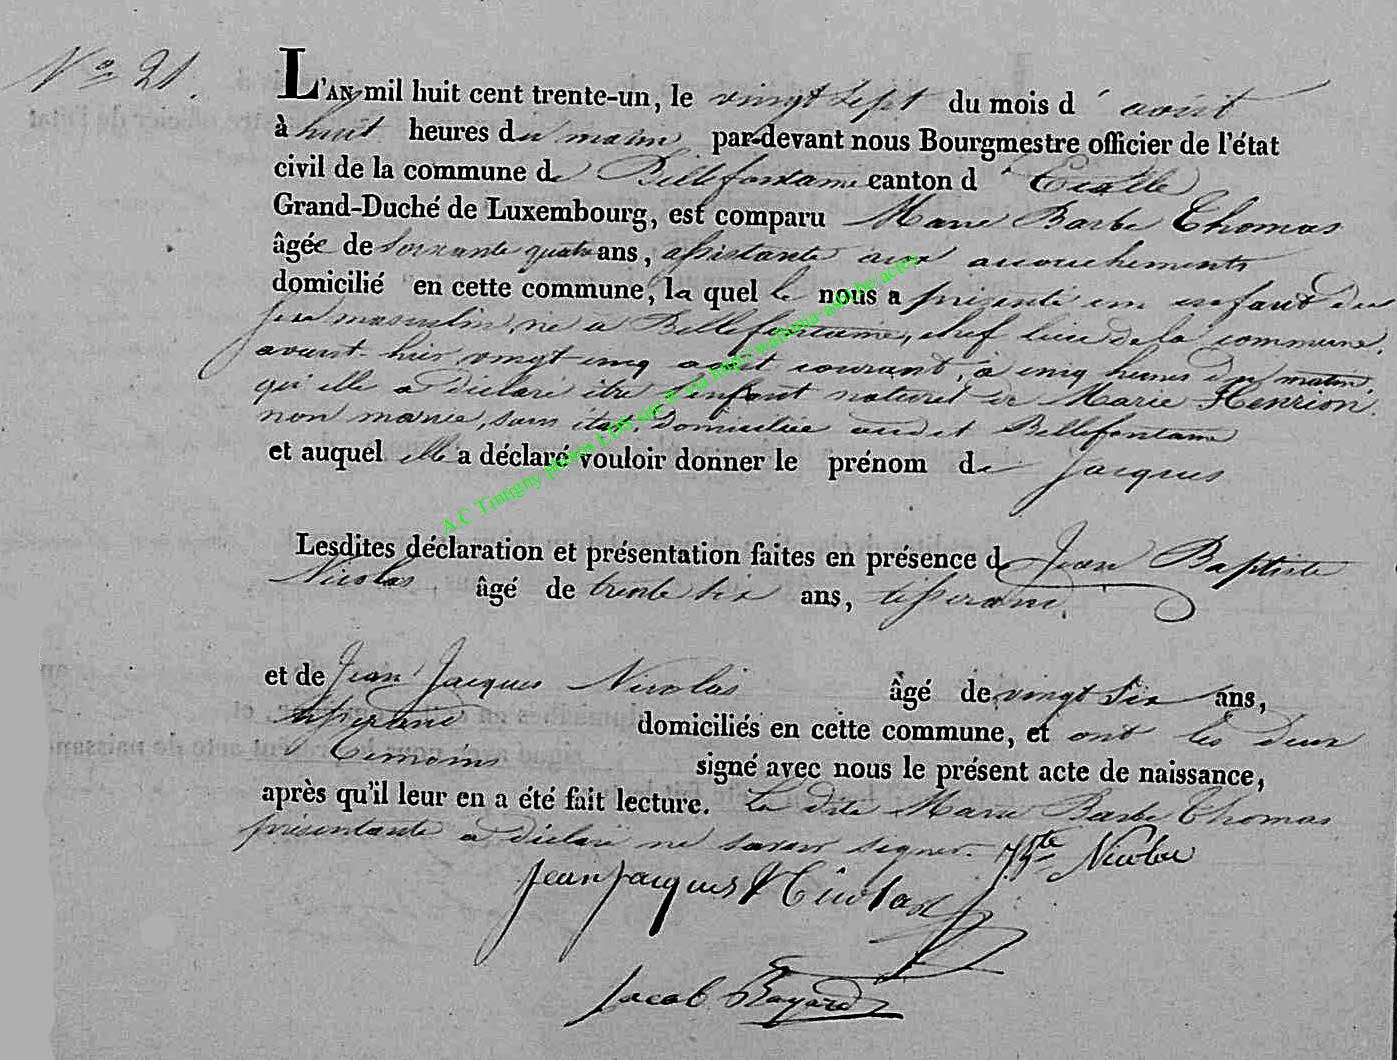 N° 21.
L'AN mil huit cent trente-un, le vingt sept du mois d'août
à huit heures du matin par-devant nous Bourgmestre officier de l'état
civil de la commune de Bellefontaine canton d'Etalle
Grand-Duché de Luxembourg, est comparu Marie Barbe Thomas
âgée de soixante quatre ans, assistante aux accouchements
domicilié en cette commune, la quelle nous a présenté un enfant du
sexe masculin, né à Bellefontaine, chef lieu de la commune,
avant-hier vingt cinq août courant, à cinq heures du matin,
qu'elle a déclaré être l'enfant naturel de Marie Henrion,
non mariée, sans état, domiciliée audit Bellefontaine
et auquel elle a déclaré vouloir donner le prénom de Jacques
Lesdites déclaration et présentation faites en présence de Jean Baptiste
Nicolas âgé de trente six ans, tisserand,
et de Jean Jacques Nicolas âgé de vingt six ans,
tisserand domiciliés en cette commune, et ont les deux
témoins signé avec nous le présent acte de naissance,
après qu'il leur en a été fait lecture. La dite Marie Barbe Thomas
présentante a déclaré ne savoir signer. Jbte Nicolas
Jean Jacques Nicolas
Jacob Bayard
A.C Tintigny photos LDS site @ via http://wallonia-asbl.be/actes